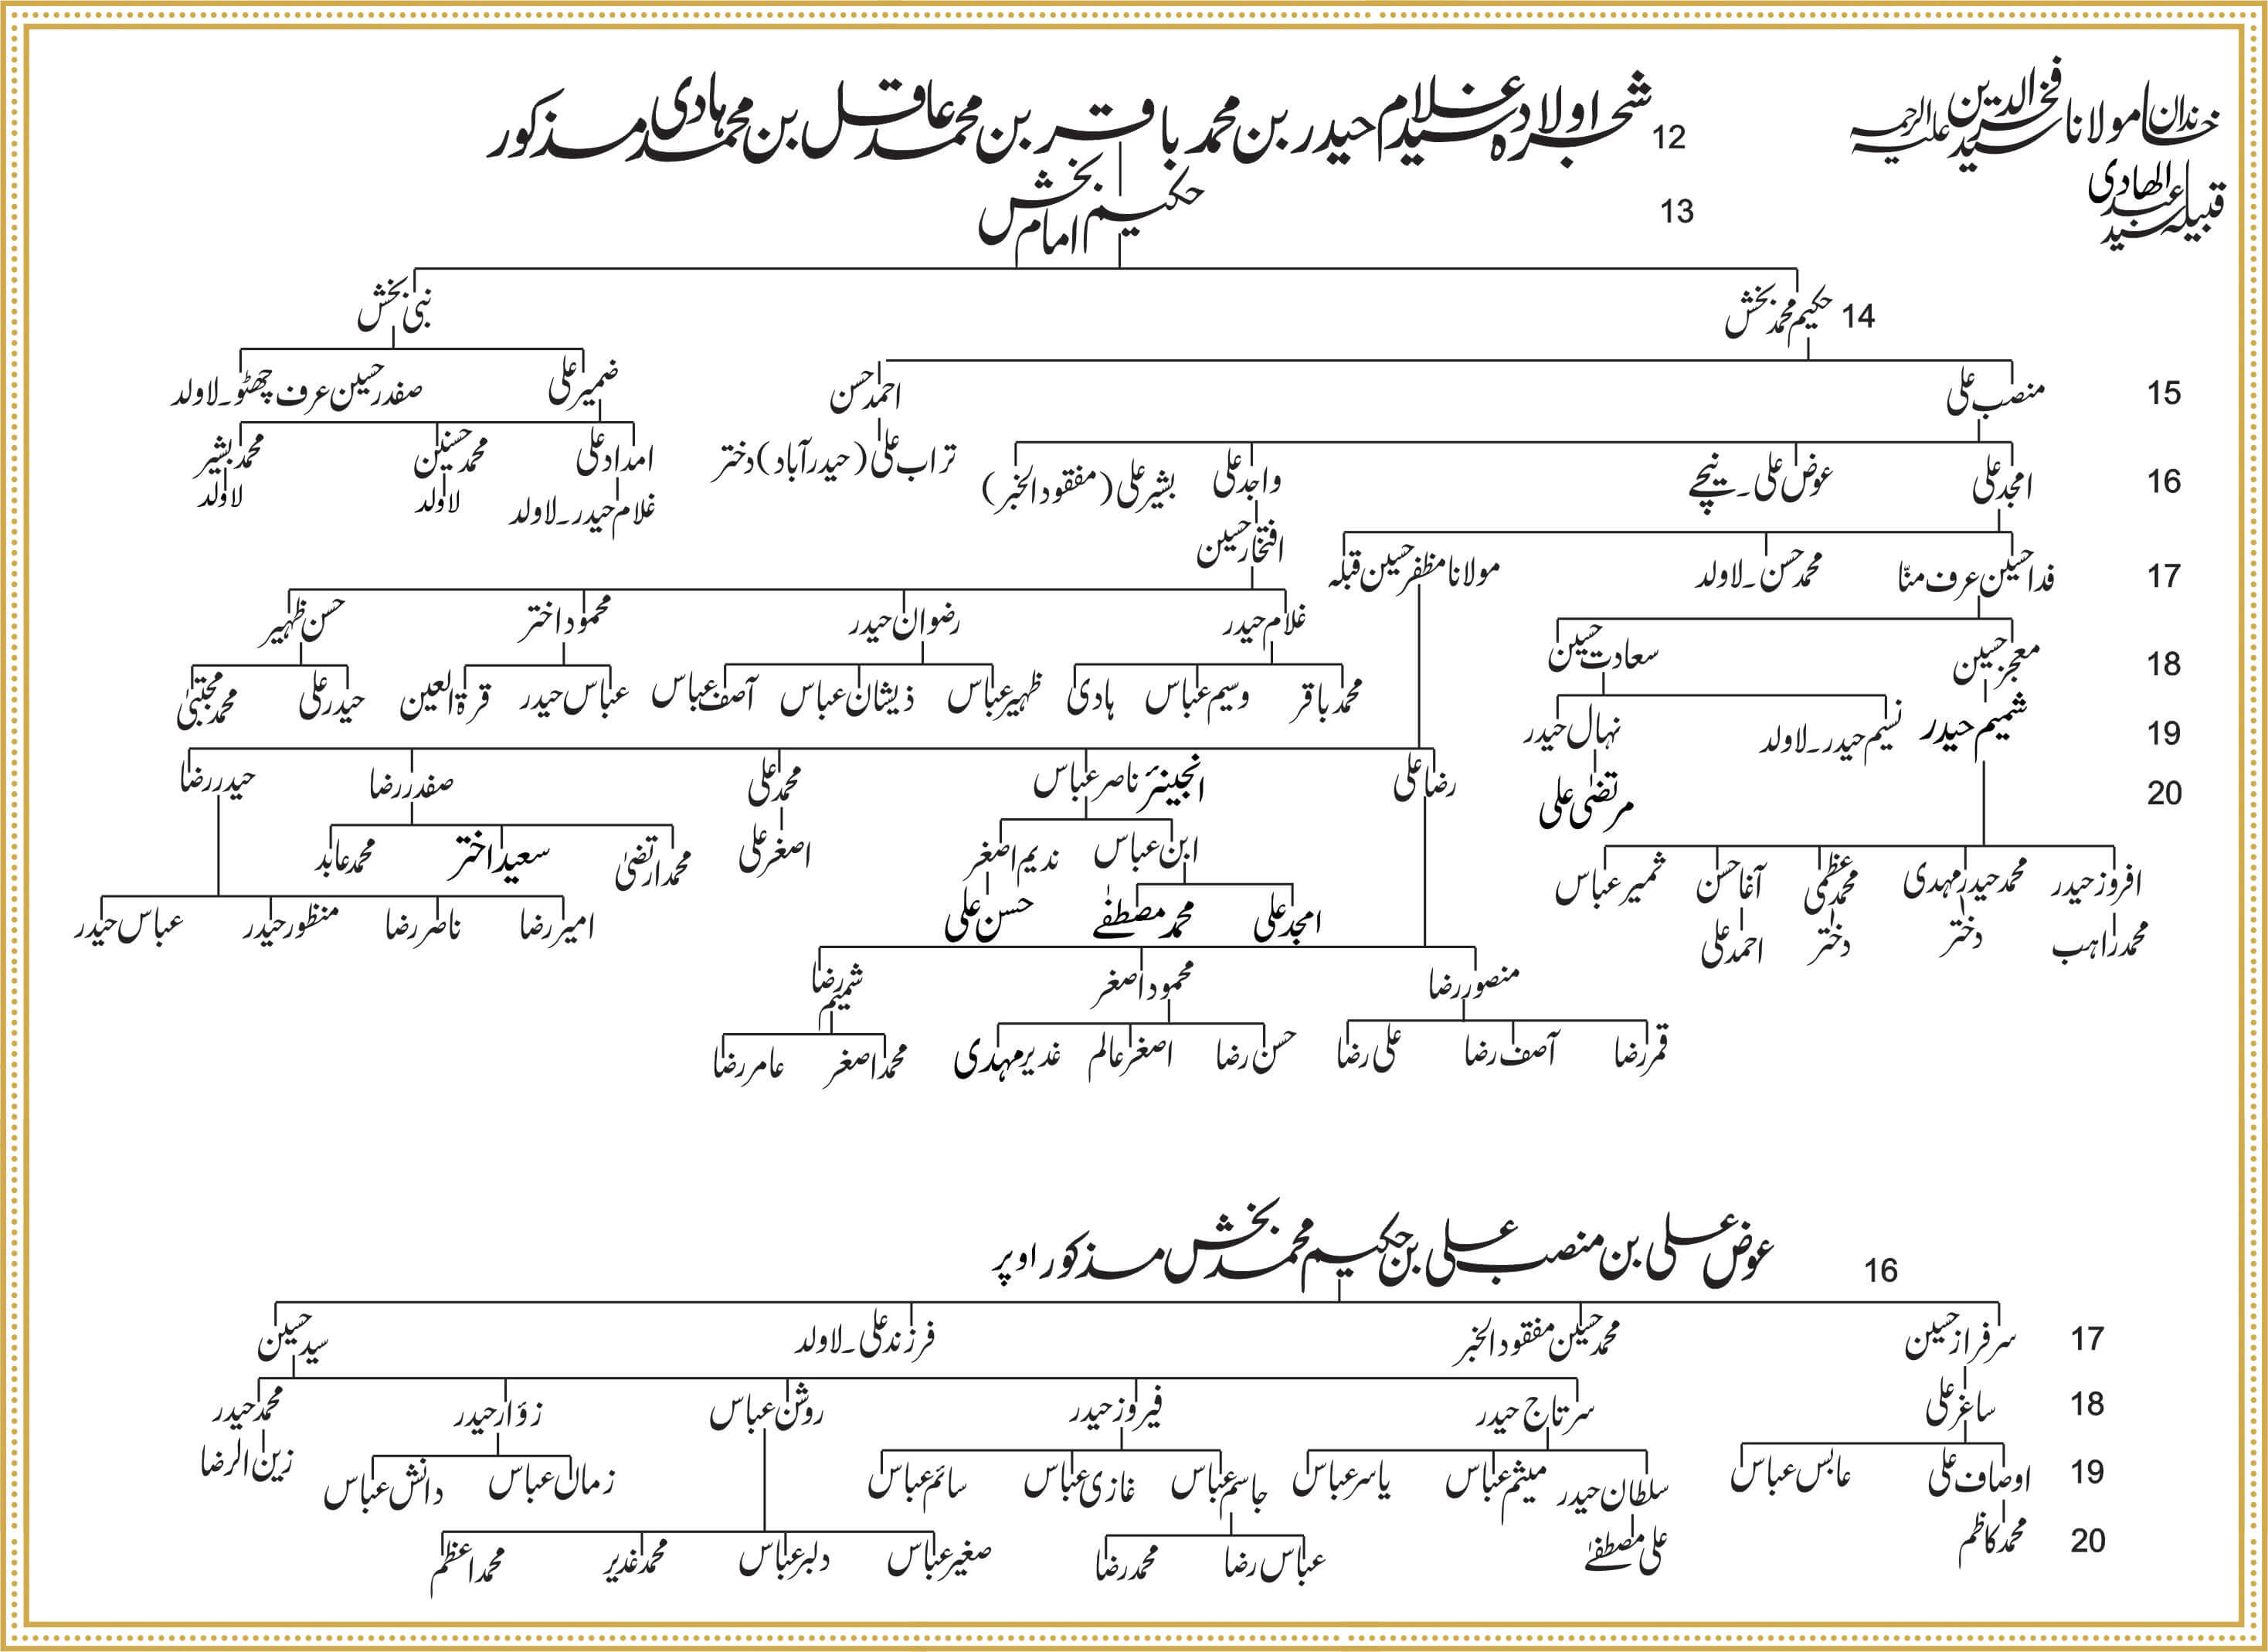 خاندان مولانا سید فخرالدین علیہ الرحمہ
قبیلہ سید عبدالھادی
12 شجرہ اولاد سید غلام حیدر بن محمد باقر بن محمد عاقل بن محمد ہادی مذکور
13 حکیم امام بخش
14 حکیم محمد بخش نبی بخش
15 منصب علی احمد حسن ضمیر علی صفدر حسین عرف چھٹو۔لاولد
16 امجد علی عوض علی۔نیچے واجد علی بشیر علی (مفقود الخبر) تراب علی (حیدرآباد) دختر امداد علی محمد حسنین محمد بشیر
غلام حیدر۔لاولد لاولد لاولد
افتخار حسین
17 فدا حسین عرف منّا محمد حسن۔لاولد مولانا مظفر حسین قبلہ
غلام حیدر رضوان حیدر محمود اختر حسن ظہیر
18 معجز حسین سعادت حسین
محمد باقر وسیم عباس ہادی ظہیر عباس ذیشان عباس آصف عباس عباس حیدر قرۃ العین حیدر علی محمد مجتبیٰ
19 شمیم حیدر نسیم حیدر۔لاولد نہال حیدر
20 مرتضٰی علی رضا علی انجینئر ناصر عباس محمد علی صفدر رضا حیدر رضا
ابن عباس ندیم اصغر اصغر علی محمد ارتضیٰ سعید اختر محمد عابد
افروز حیدر محمد حیدر مہدی محمد عظمی آغا حسن ثمیر عباس
امجد علی محمد مصطفےٰ حسن علی امیر رضا ناصر رضا منظور حیدر عباس حیدر
محمد راہب دختر دختر احمد علی
منصور رضا محمود اصغر شمیم رضا
قمر رضا آصف رضا علی رضا حسن رضا اصغر عالم غدیر مہدی محمد اصغر عامر رضا
16 عوض علی بن منصب علی بن حکیم محمد بخش مذکور اوپر
17 سرفراز حسین محمد حسین مفقود الخبر فرزند علی۔لاولد سید حسین
18 ساغر علی سرتاج حیدر فیروز حیدر روشن عباس زوّار حیدر محمد حیدر
زین الرضا
19 اوصاف علی عابس عباس سلطان حیدر میثم عباس یاسر عباس جاسم عباس غازی عباس سائم عباس زمان عباس دانش عباس
20 محمد کاظم علی مصطفےٰ عباس رضا محمد رضا صغیر عباس دلبر عباس محمد غدیر محمد اعظم